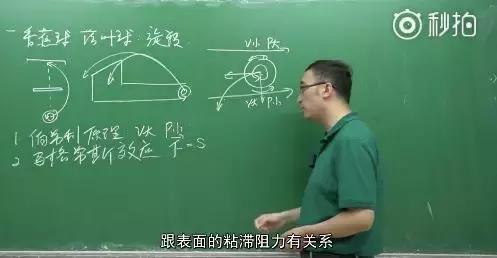 秒拍
一 香蕉球 落叶球 旋转
V小 P大
V大 P小
1 伯努利原理 V大 P小
2 马格努斯效应
跟表面的粘滞阻力有关系